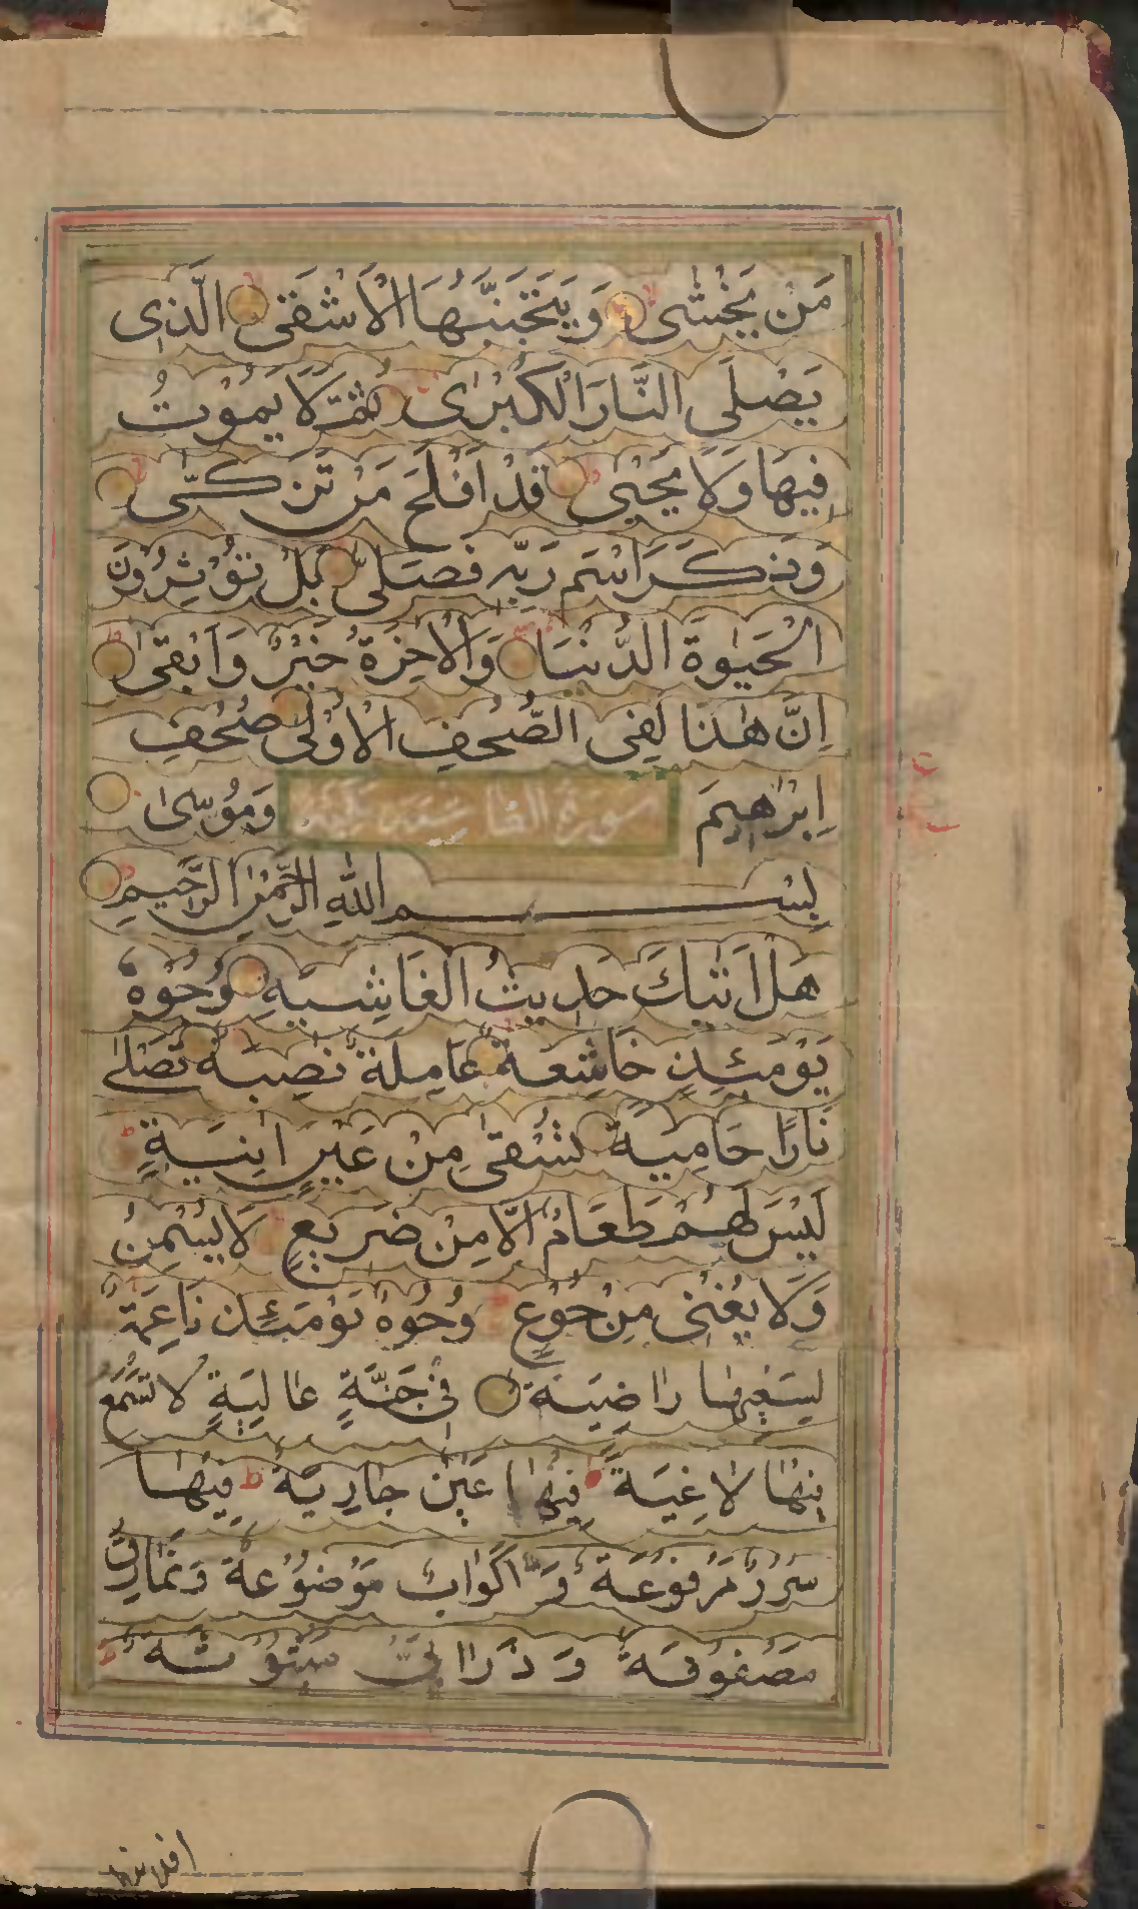 مَنْ يَخْشٰى وَيَتَجَنَّبُهَا الْاَشْقَى الَّذِى
يَصْلَى النَّارَ الْكُبْرٰى ثُمَّ لَا يَمُوْتُ
فِيهَا وَلَا يَحْيٰى قَدْ اَفْلَحَ مَنْ تَزَكّٰى
وَذَكَرَ اسْمَ رَبِّهٖ فَصَلّٰى بَلْ تُؤْثِرُوْنَ
الْحَيٰوةَ الدُّنْيَا وَالْاٰخِرَةُ خَيْرٌ وَاَبْقٰى
اِنَّ هٰذَا لَفِى الصُّحُفِ الْاُوْلٰى صُحُفِ
اِبْرٰهِيمَ وَمُوْسٰى
سورة الغاشية مكية
بِسْمِ اللّٰهِ الرَّحْمٰنِ الرَّحِيمِ
هَلْ اَتٰىكَ حَدِيثُ الْغَاشِيَةِ وُجُوْهٌ
يَوْمَئِذٍ خَاشِعَةٌ عَامِلَةٌ نَاصِبَةٌ تَصْلٰى
نَارًا حَامِيَةً تُسْقٰى مِنْ عَيْنٍ اٰنِيَةٍ
لَيْسَ لَهُمْ طَعَامٌ اِلَّا مِنْ ضَرِيْعٍ لَا يُسْمِنُ
وَلَا يُغْنِى مِنْ جُوْعٍ وُجُوْهٌ يَوْمَئِذٍ نَاعِمَةٌ
لِسَعْيِهَا رَاضِيَةٌ فِى جَنَّةٍ عَالِيَةٍ لَا تَسْمَعُ
فِيْهَا لَاغِيَةً فِيْهَا عَيْنٌ جَارِيَةٌ فِيْهَا
سُرُرٌ مَرْفُوْعَةٌ وَاَكْوَابٌ مَوْضُوْعَةٌ وَنَمَارِقُ
مَصْفُوْفَةٌ وَزَرَابِىُّ مَبْثُوْثَةٌ